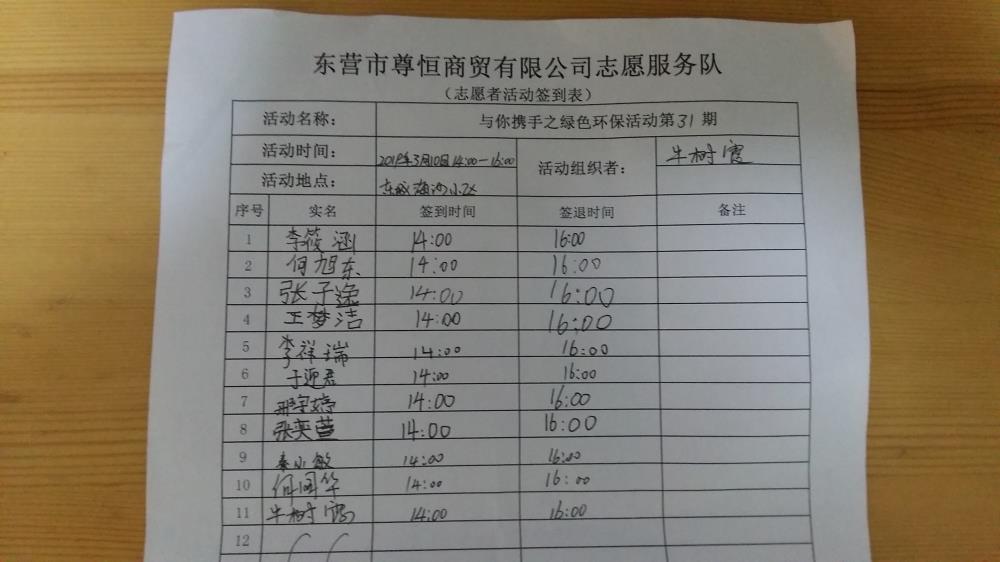 东营市尊恒商贸有限公司志愿服务队
（志愿者活动签到表）
活动名称： 与你携手之绿色环保活动第31期
活动时间： 2019年3月10日14:00-16:00 活动组织者： 牛树霞
活动地点： 东城 小区
序号 实名 签到时间 签退时间 备注
1 李筱涵 14:00 16:00
2 何旭东 14:00 16:00
3 张子逸 14:00 16:00
4 王梦洁 14:00 16:00
5 李祥瑞 14:00 16:00
6 于迎君 14:00 16:00
7 邢宇婷 14:00 16:00
8 张奕萱 14:00 16:00
9 秦小敏 14:00 16:00
10 何国华 14:00 16:00
11 牛树霞 14:00 16:00
12